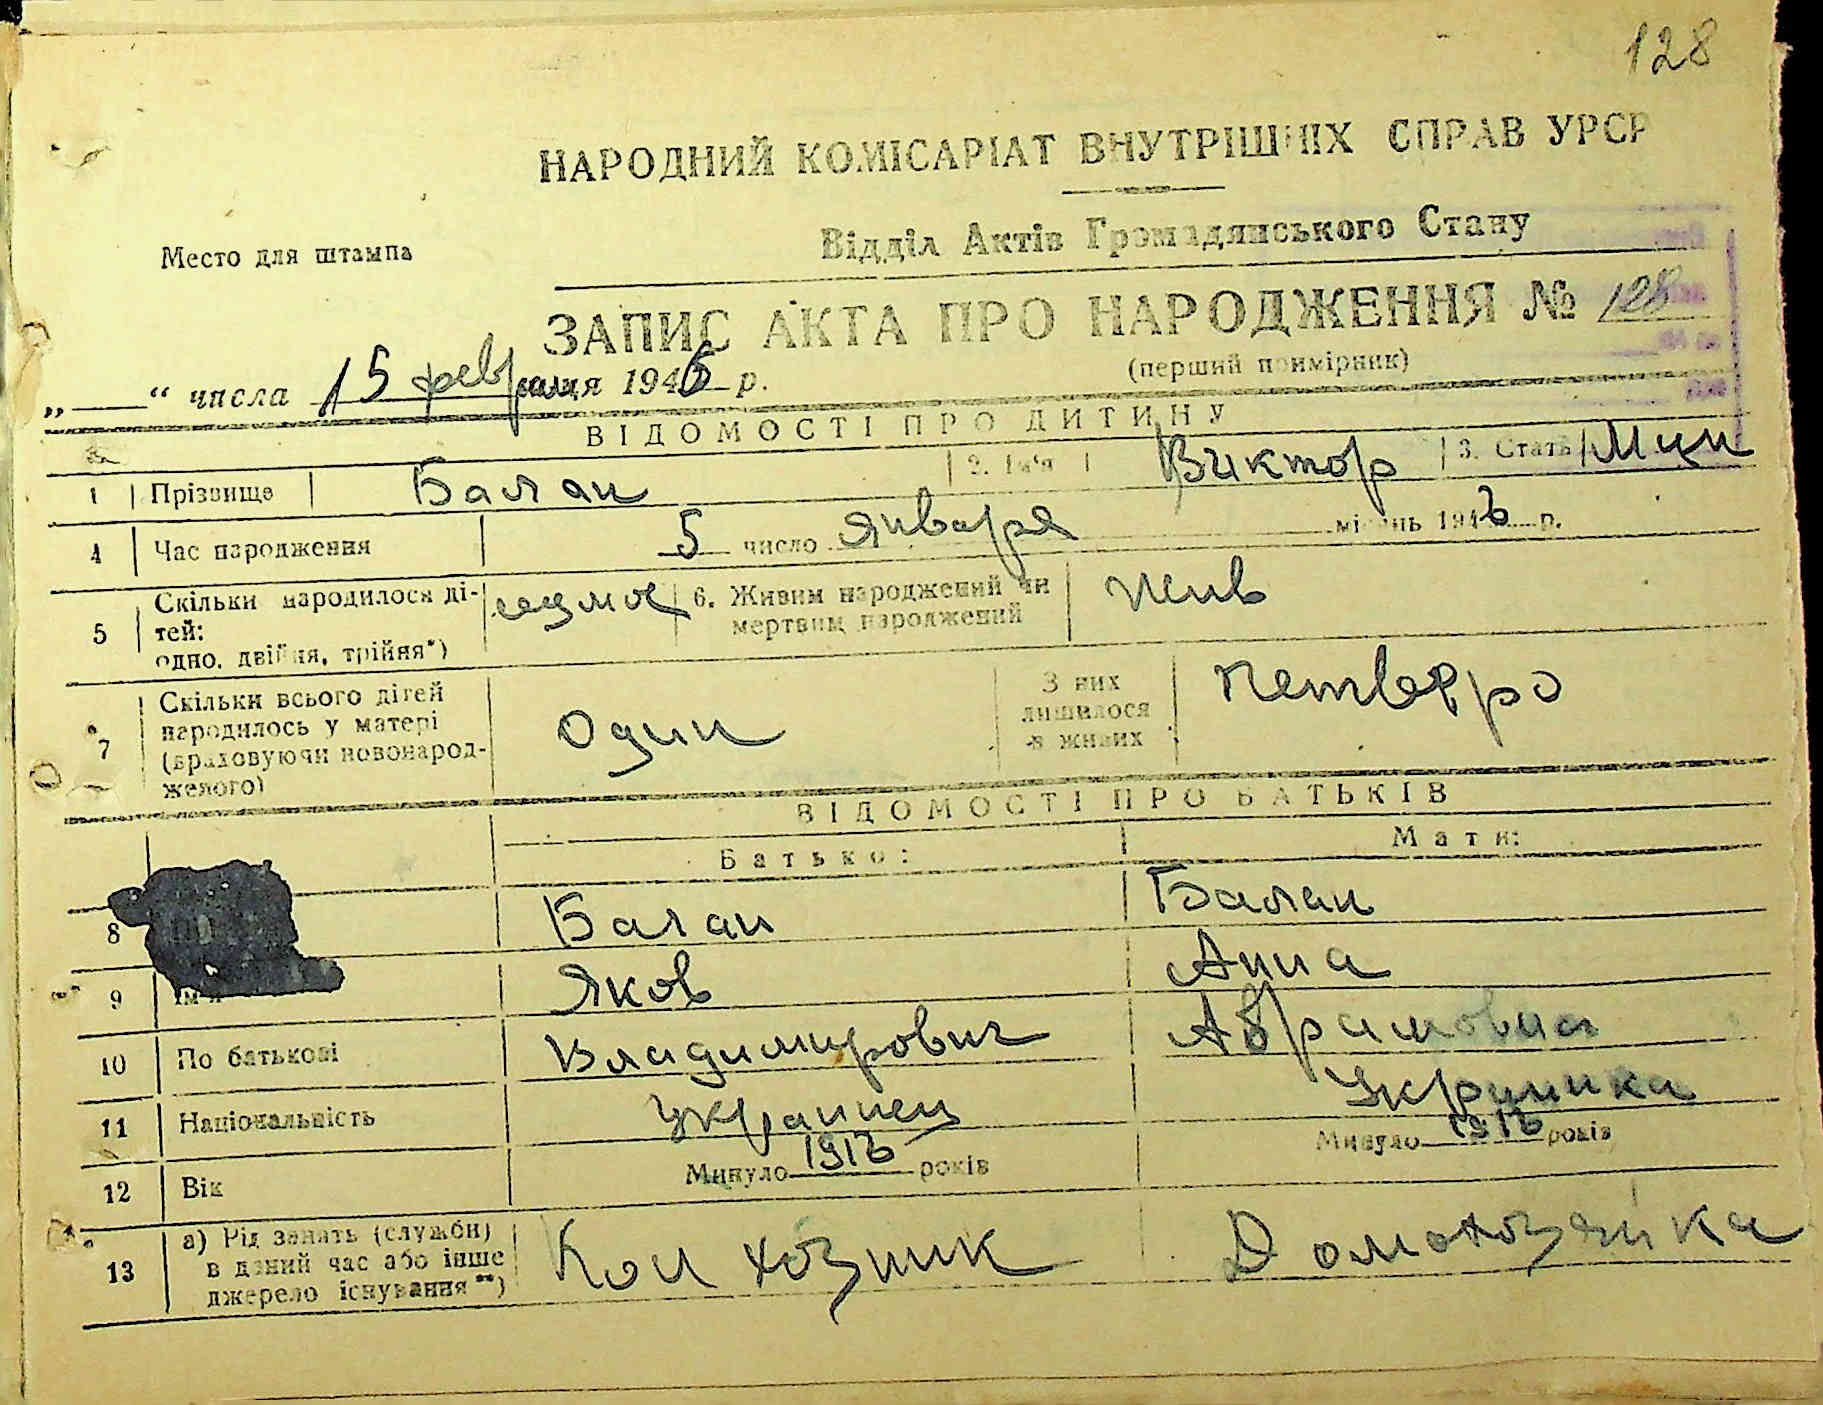 128
НАРОДНИЙ КОМІСАРІАТ ВНУТРІШНІХ СПРАВ УРСР
Відділ Актів Громадянського Стану
Место для штампа
ЗАПИС АКТА ПРО НАРОДЖЕННЯ № 128
(перший примірник)
„ “ числа 15 февраля 1946 р.
ВІДОМОСТІ ПРО ДИТИНУ
1 Прізвище Балан 2. Ім'я Виктор 3. Стать
4 Час народження 5 число Января місяць 1946 р.
5 Скільки народилося ді-
тей:
одно, двійня, трійня*)
6. Живим народжений чи
мертвим народжений
жив
7 Скільки всього дітей
народилось у матері
(враховуючи новонарод-
женого)
Один
З них
лишилося
в живих
четверро
ВІДОМОСТІ ПРО БАТЬКІВ
Батько: Мати:
8 Балан Балан
9 Ім'я Яков Анна
10 По батькові Владимирович Абрамовна
11 Національність Украинец
12 Вік Минуло років Минуло років
13 а) Рід занять (служби)
в даний час або інше
джерело існування**)
Колхозник Домохозяйка